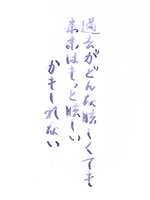 過去がどんな眩しくても
未来はもっと眩しい
かもしれない